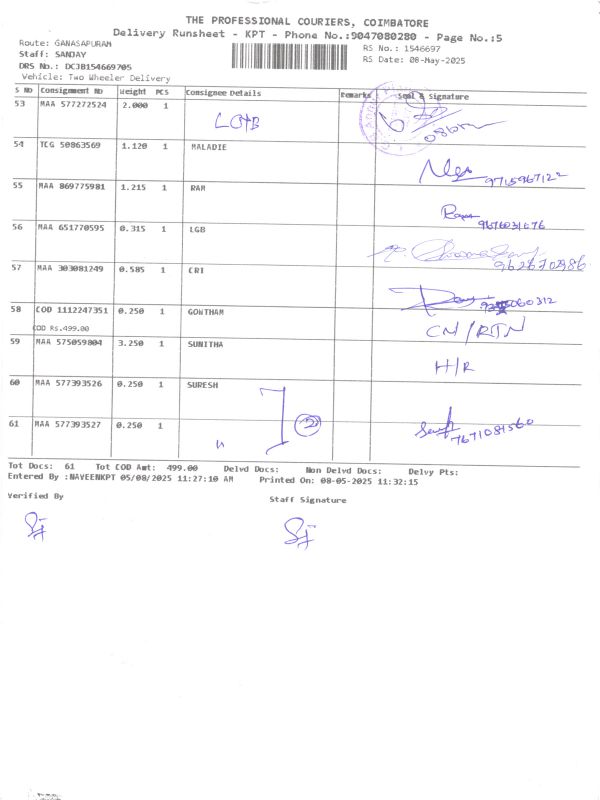 THE PROFESSIONAL COURIERS, COIMBATORE
Delivery Runsheet - KPT - Phone No.:9047080280 - Page No.:5
Route: GANASAPURAM
RS No.: 1546697
Staff: SANJAY
RS Date: 08-May-2025
DRS No.: DCJB154669705
Vehicle: Two Wheeler Delivery
S NO Consignment NO Weight PCS Consignee Details Remarks Seal & Signature
53 MAA 577272524 2.000 1
54 TCG 50863569 1.120 1 MALADIE
9715967122
55 MAA 869775981 1.215 1 RAM
Ram
9676031076
56 MAA 651770595 0.315 1 LGB
9626702986
57 MAA 303081249 0.585 1 CRI
58 COD 1112247351 0.250 1 GOWTHAM
COD Rs.499.00
CN/RTN
59 MAA 575059804 3.250 1 SUNITHA
H/R
60 MAA 577393526 0.250 1 SURESH
2
61 MAA 577393527 0.250 1 "
7671081560
Tot Docs: 61 Tot COD Amt: 499.00 Delvd Docs: Non Delvd Docs: Delvy Pts:
Entered By :NAVEENKPT 05/08/2025 11:27:10 AM Printed On: 08-05-2025 11:32:15
Verified By
Staff Signature